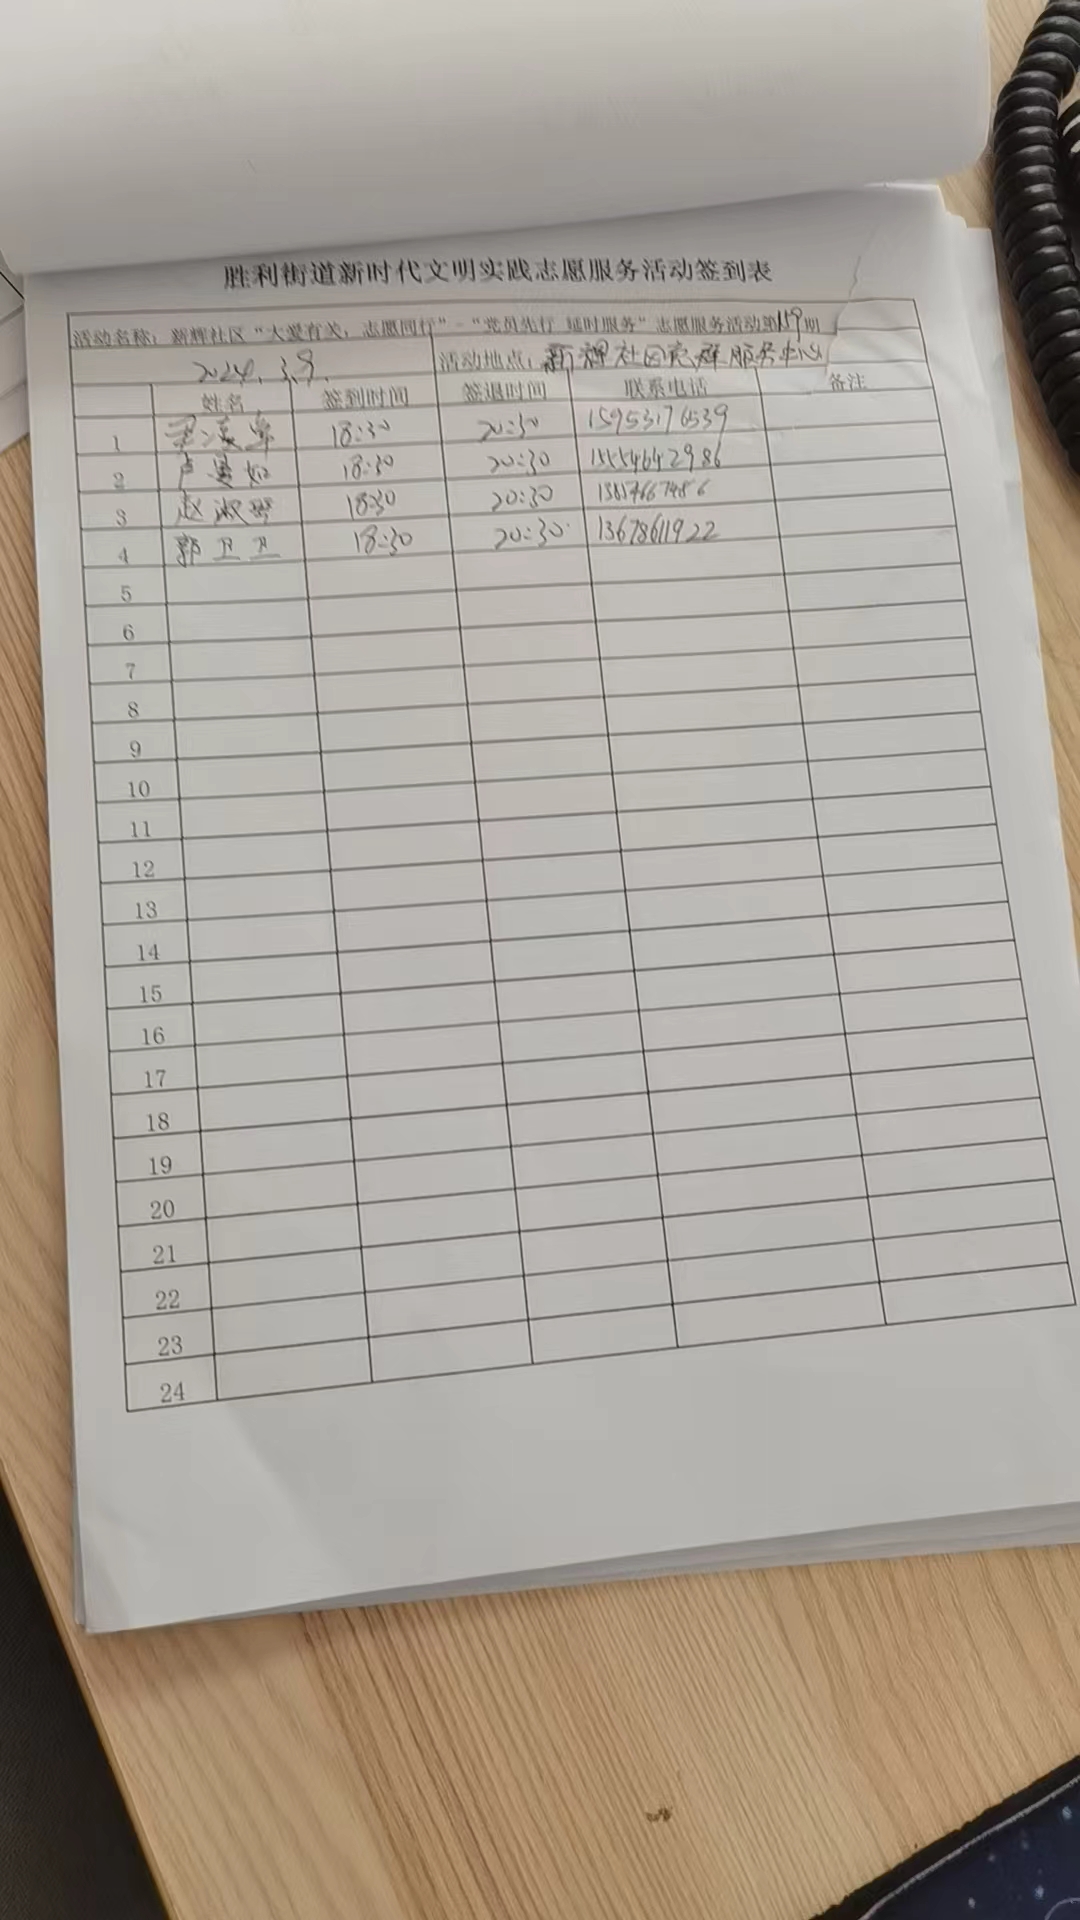 胜利街道新时代文明实践志愿服务活动签到表
活动名称：新辉社区“大爱有关，志愿同行”-“党员先行 延时服务”志愿服务活动第159期
2024.3.9. 活动地点：新辉社区党群服务中心
姓名 签到时间 签退时间 联系电话 备注
1 18:30 20:30 15953176539
2 卢曼如 18:30 20:30 15554642986
3 赵淑 18:30 20:30
4 郭卫卫 18:30 20:30 13678611922
5
6
7
8
9
10
11
12
13
14
15
16
17
18
19
20
21
22
23
24